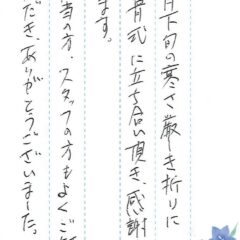 月下旬の寒さ厳しき折りに
骨式に立ち合い頂き、感謝
ます。
当の方、スタッフの方もよくご
だき、ありがとうございました。